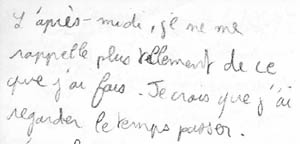 L'après-midi, je ne me
rappelle plus réellement de ce
que j'ai fais. Je crois que j'ai
regarder le temps passer.